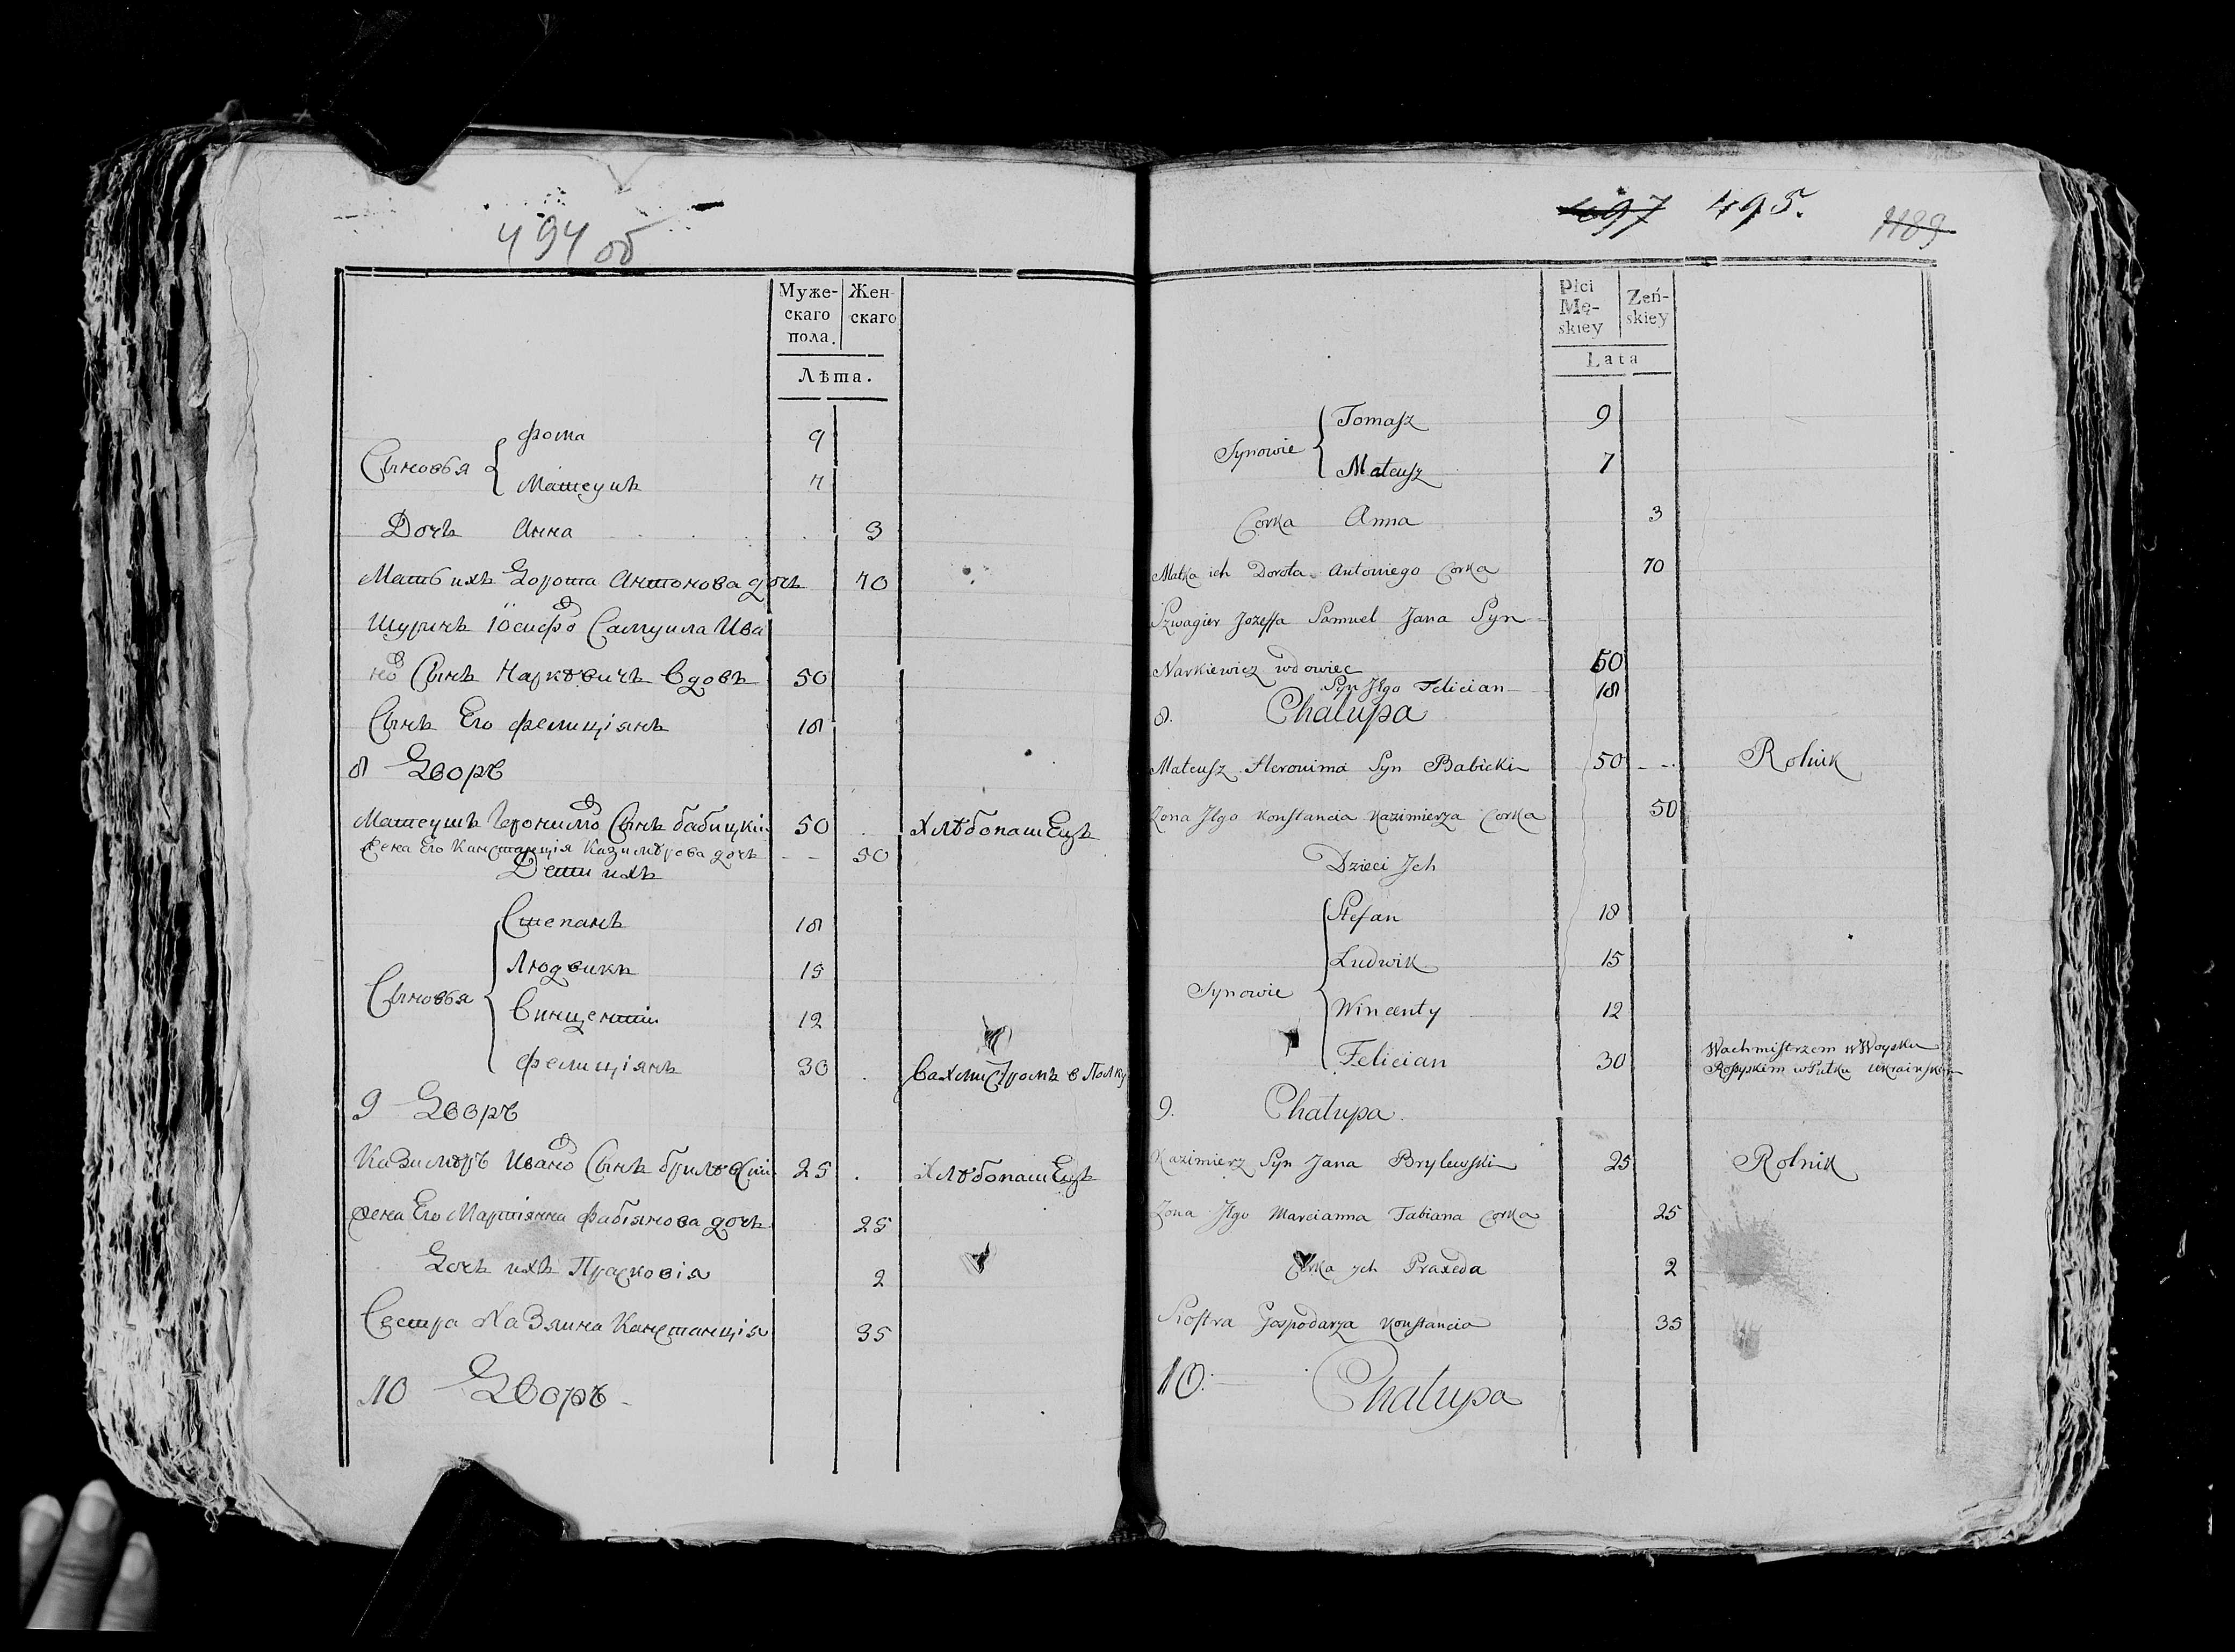 494 об
Муже-
скаго
пола.
Жен-
скаго
Лѣта.
Сыновья
Фома 9
Матеушъ 7
Дочь Анна 3
Мать ихъ Дорота Антонова дочь 70
Шуринъ Іосифо Самуила Ива
но Сынъ Нарковичъ вдовъ 50
Сынъ Его Фелиціянъ 18
8 Дворъ
Матеушъ Іеронимо Сынъ Бабицкій 50 Хлѣбопашецъ
Жена Его Канстанція Казимѣрова дочь 50
Дети ихъ
Сыновья
Степанъ 18
Людвикъ 15
Винцентій 12
Фелиціянъ 30 Вахмистромъ в Полку
9 Дворъ
Казимѣръ Ивано Сынъ Брилѣвскій 25 Хлѣбопашецъ
Жена Его Марціянна Фабіянова дочь 25
Дочь ихъ Прасковія 2
Сестра Хазяина Канстанція 35
10 Дворъ
497 495.
1189
Płci
Mę-
skiey
Zeń-
skiey
Lata
Synowie
Tomasz 9
Mateusz 7
Corka Anna 3
Matka ich Dorota Antoniego Corka 70
Szwagier Jozeffa Samuel Jana Syn
Narkiewicz wdowiec 50
Syn Jego Felician 18
8. Chałupa
Mateusz Heronima Syn Babicki 50 Rolnik
Zona Jego Konstancia Kazimierza Corka 50
Dzieci Jch
Synowie
Stefan 18
Ludwik 15
Wincenty 12
Felician 30
Wachmistrzem w Woysku
Rossyskim w Pułku Ukrainskim
9. Chałupa.
Kazimierz Syn Jana Brylewski 25 Rolnik
Zona Jego Marcianna Fabiana Corka 25
Corka ych Praxeda 2
Siostra Gospodarza Konstancia 35
10. Chałupa